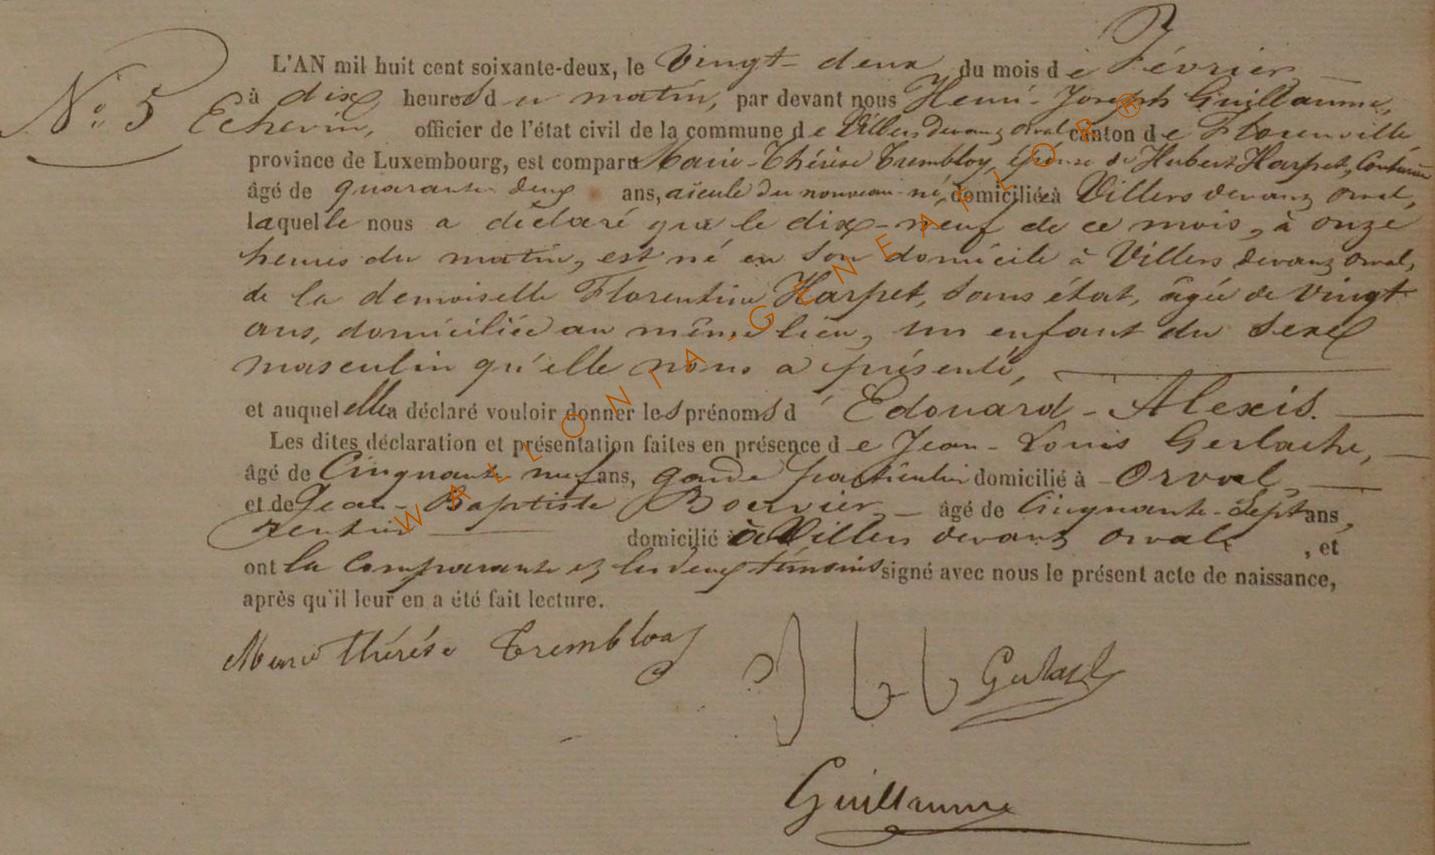 N° 5
L'AN mil huit cent soixante-deux, le vingt-deux du mois de Février
à dix heures du matin, par devant nous Henri-Joseph Guillaume,
Echevin, officier de l'état civil de la commune de Villers devant orval canton de Florenville
province de Luxembourg, est comparu Marie-Thérèse Trembloy, épouse de Hubert Harpet,
âgé de quarante deux ans, aieule du nouveau-né, domiciliée à Villers devant orval,
laquelle nous a déclaré que le dix-neuf de ce mois, à onze
heures du matin, est né en son domicile à Villers devant orval,
de la demoiselle Florentine Harpet, sans état, âgée de vingt
ans, domiciliée au même lieu, un enfant du sexe
masculin qu'elle nous a présenté,
et auquel elle a déclaré vouloir donner les prénoms d' Edouard-Alexis.
Les dites déclaration et présentation faites en présence de Jean-Louis Gerlache,
âgé de Cinquante neuf ans, garde particulier domicilié à Orval
et de Jean-Baptiste âgé de Cinquante-Sept ans,
rentier domicilié à Villers devant orval, et
ont la Comparante et les deux témoins signé avec nous le présent acte de naissance,
après qu'il leur en a été fait lecture.
Marie Thérése Trembloy
Gerlache
Guillaume
WALLONIA-GENEALOR®